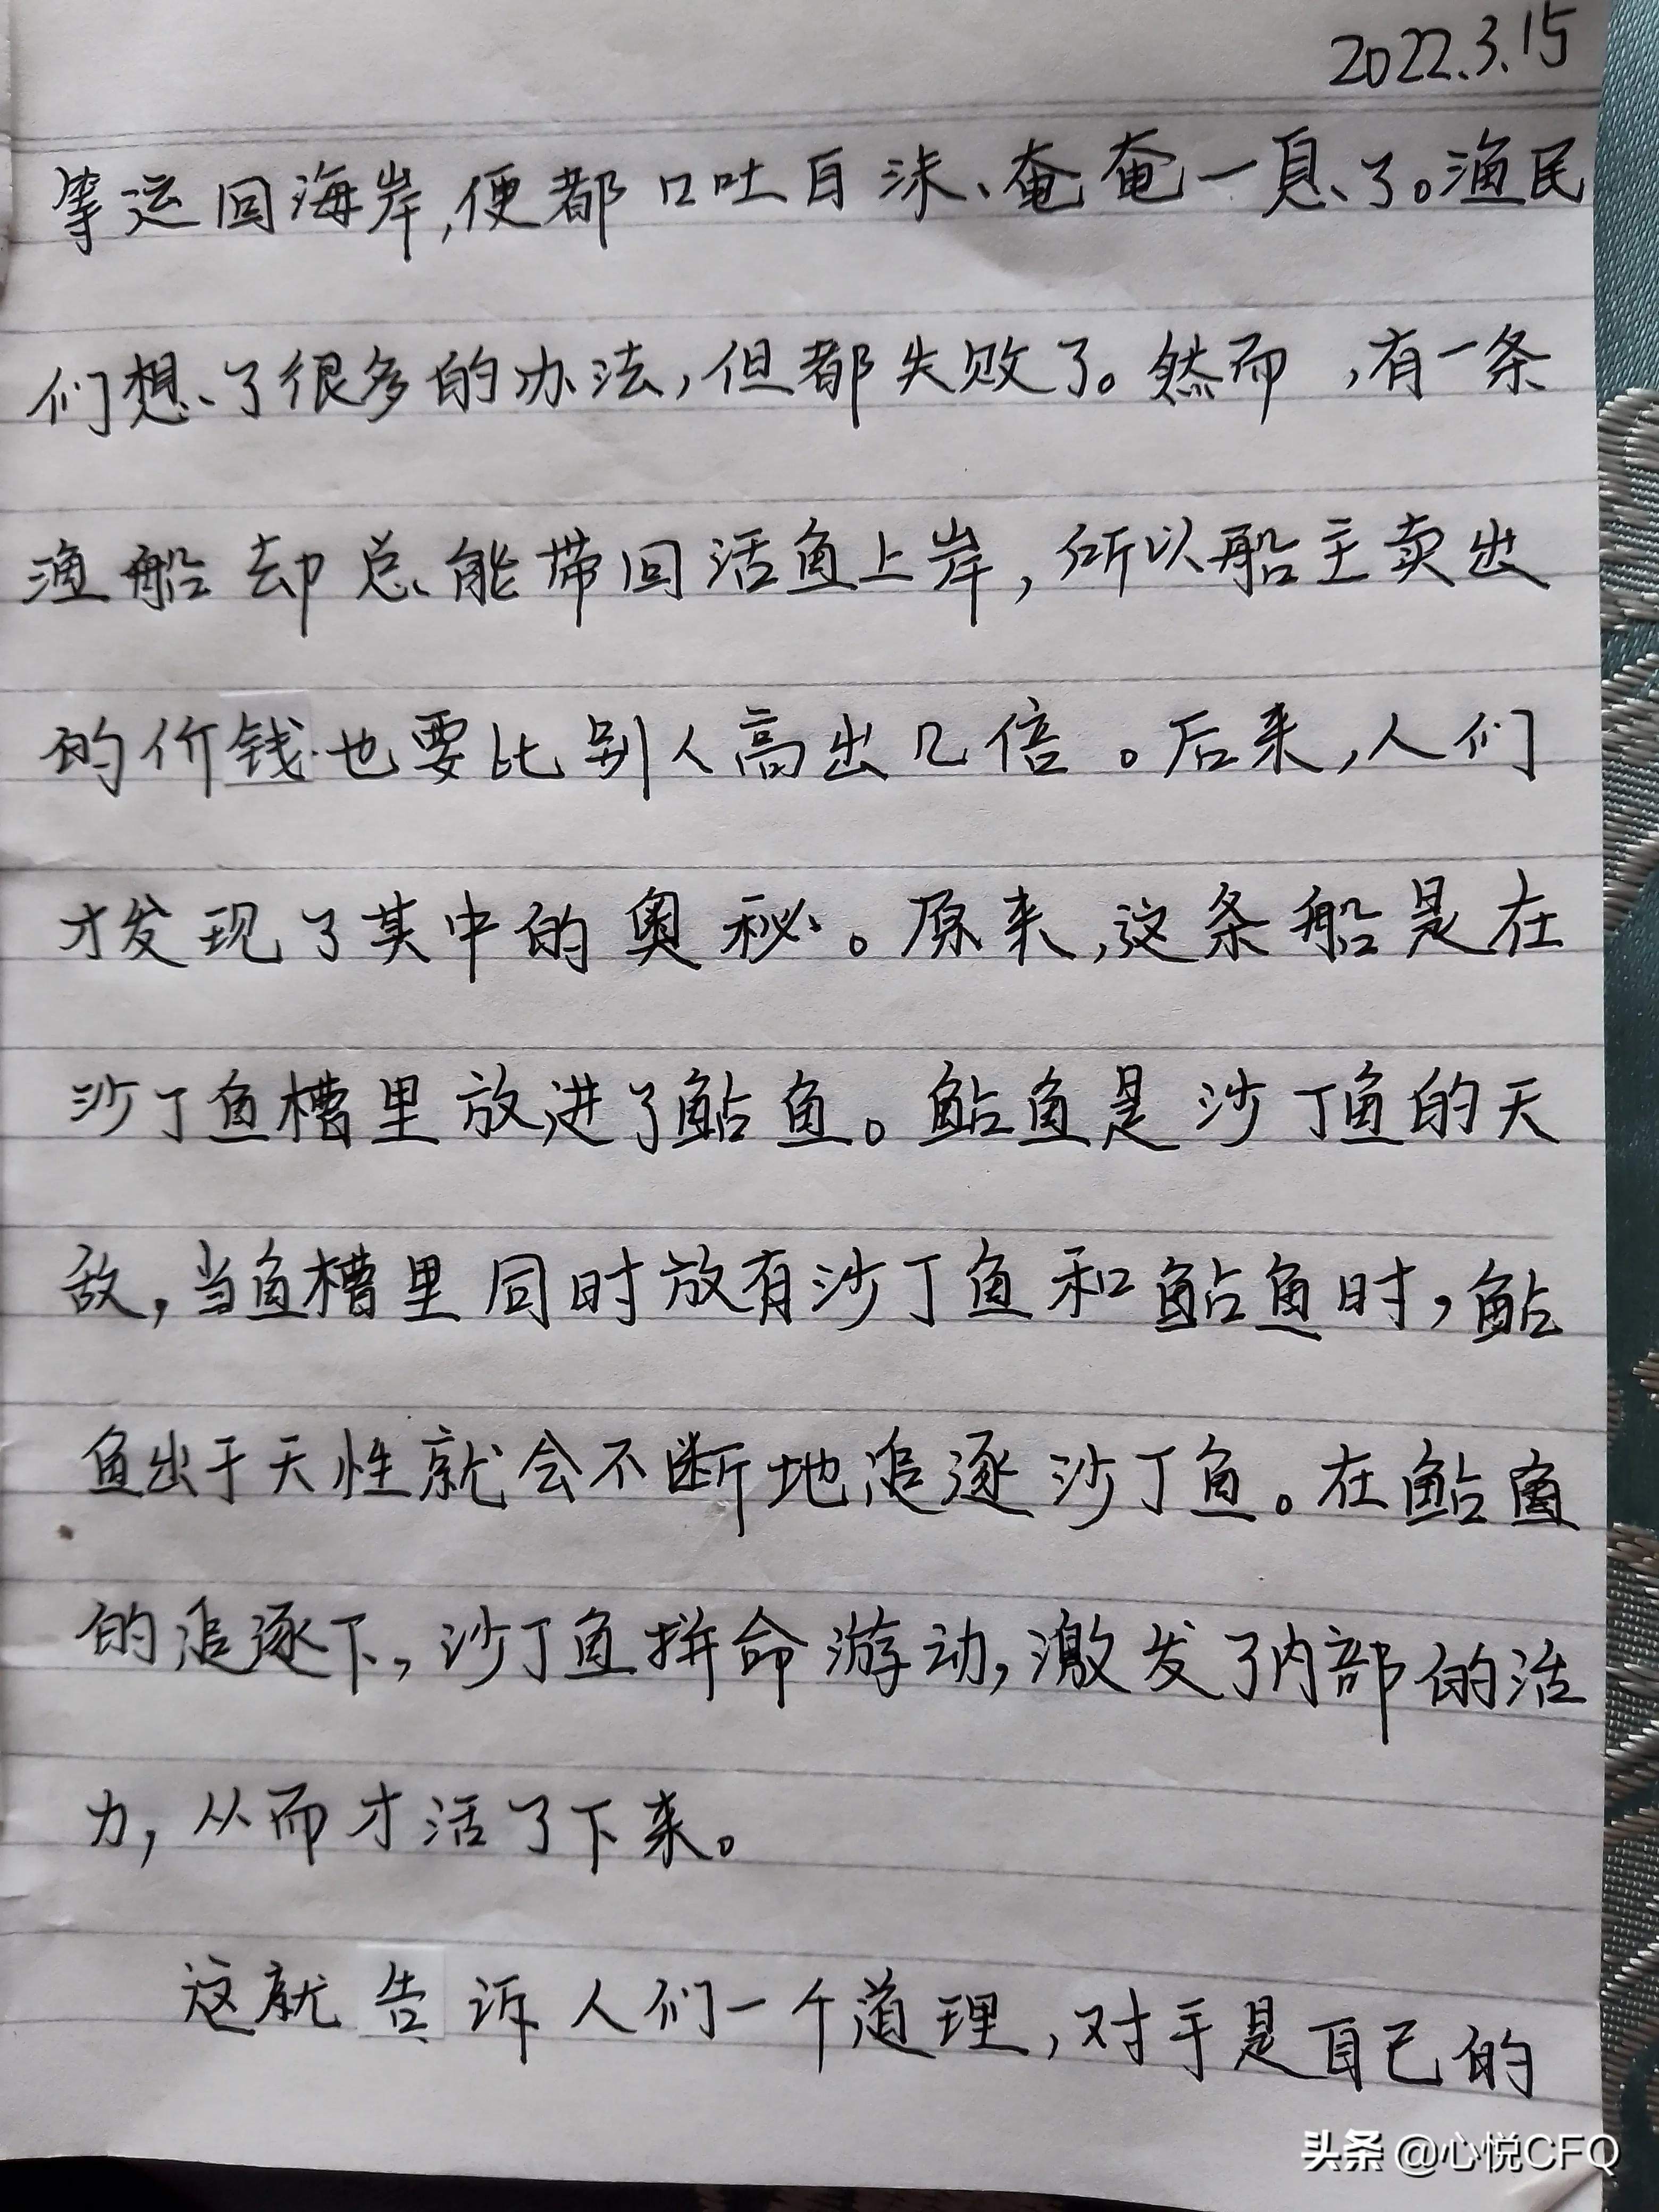 2022.3.15
等运回海岸,便都口吐白沫、奄奄一息了。渔民
们想了很多的办法,但都失败了。然而,有一条
渔船却总能带回活鱼上岸,所以船主卖出
的价钱也要比别人高出几倍。后来,人们
才发现了其中的奥秘。原来,这条船是在
沙丁鱼槽里放进了鲇鱼。鲇鱼是沙丁鱼的天
敌,当鱼槽里同时放有沙丁鱼和鲇鱼时,鲇
鱼出于天性就会不断地追逐沙丁鱼。在鲇鱼
的追逐下,沙丁鱼拼命游动,激发了内部的活
力,从而才活了下来。
这就告诉人们一个道理,对手是自己的
头条 @心悦CFQ